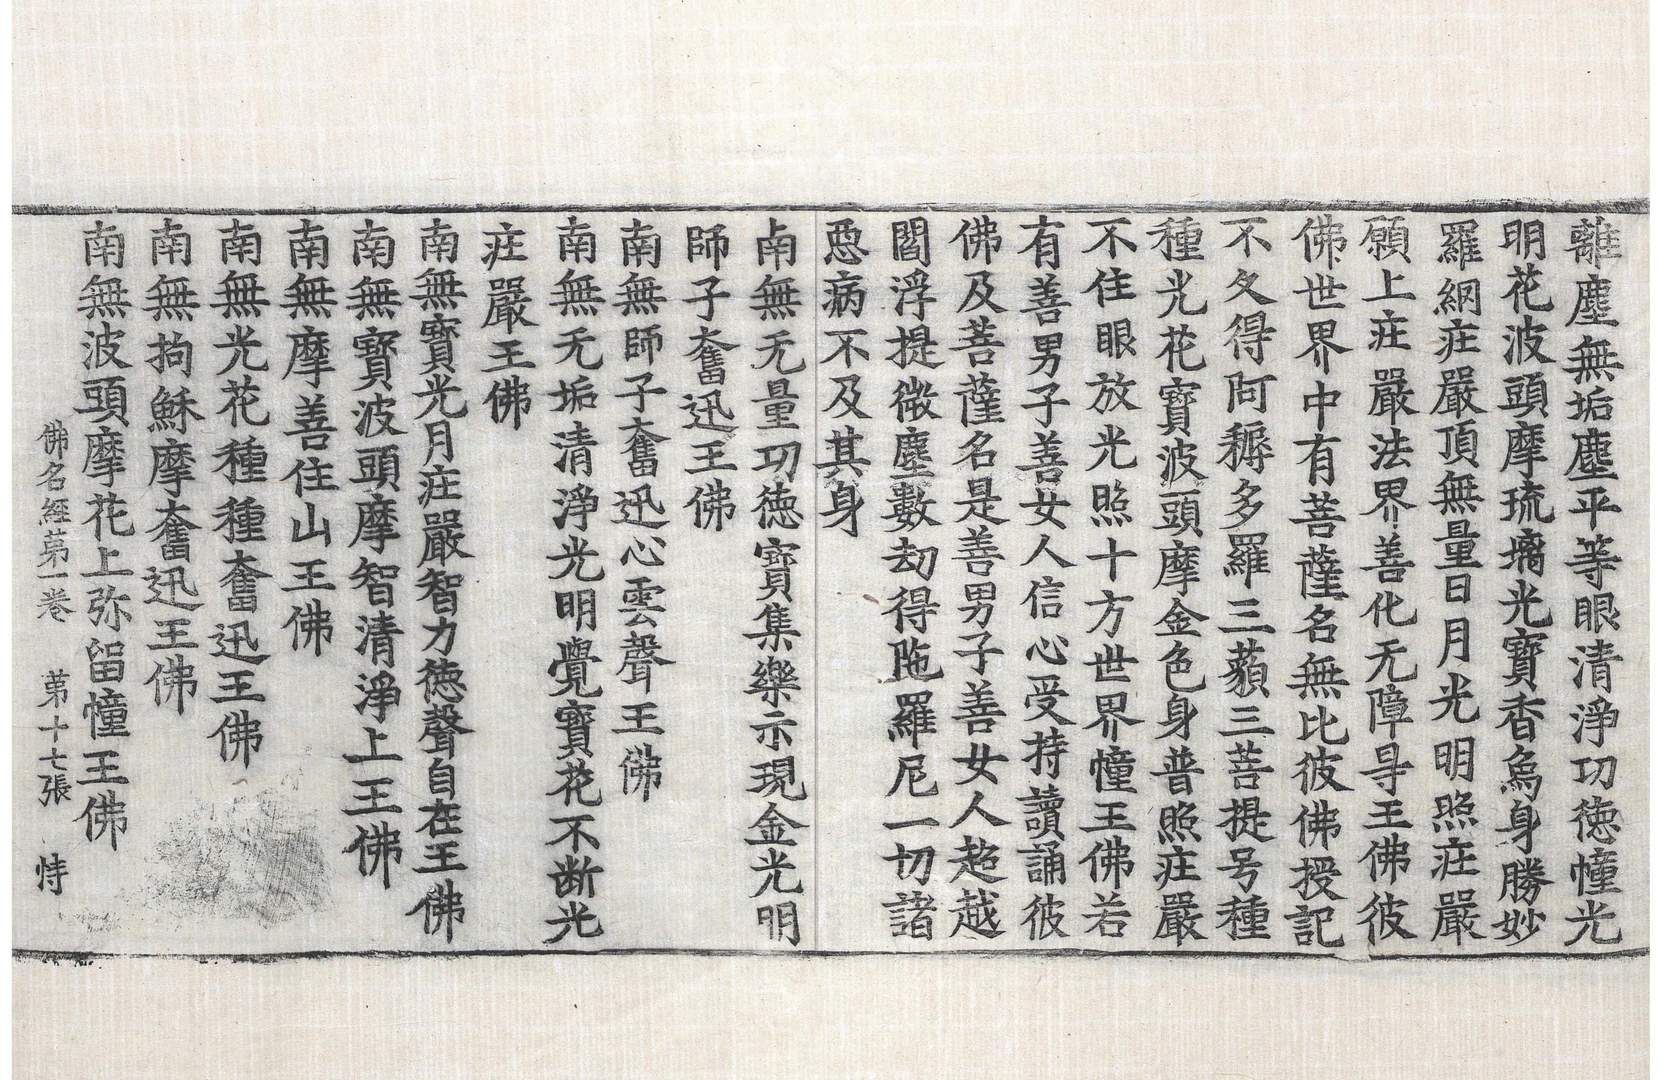 離塵無垢塵平等眼清淨功徳幢光
明花波頭摩琉璃光寶香烏身勝妙
羅網庄嚴頂無量日月光明照庄嚴
願上庄嚴法界善化无障㝵王佛彼
佛世界中有菩薩名無比彼佛授記
不久得阿耨多羅三藐三菩提号種
種光花寶波頭摩金色身普照庄嚴
不住眼放光照十方世界幢王佛若
有善男子善女人信心受持讀誦彼
佛及菩薩名是善男子善女人超越
閻浮提微塵數劫得陁羅尼一切諸
惡病不及其身
南無无量功徳寶集樂示現金光明
師子奮迅王佛
南無師子奮迅心雲聲王佛
南無无垢清淨光明覺寶花不断光
庄嚴王佛
南無寶光月庄嚴智力徳聲自在王佛
南無寶波頭摩智清淨上王佛
南無摩善住山王佛
南無光花種種奮迅王佛
南無拘穌摩奮迅王佛
南無波頭摩花上弥留幢王佛
佛名經第一巻 第十七張 恃